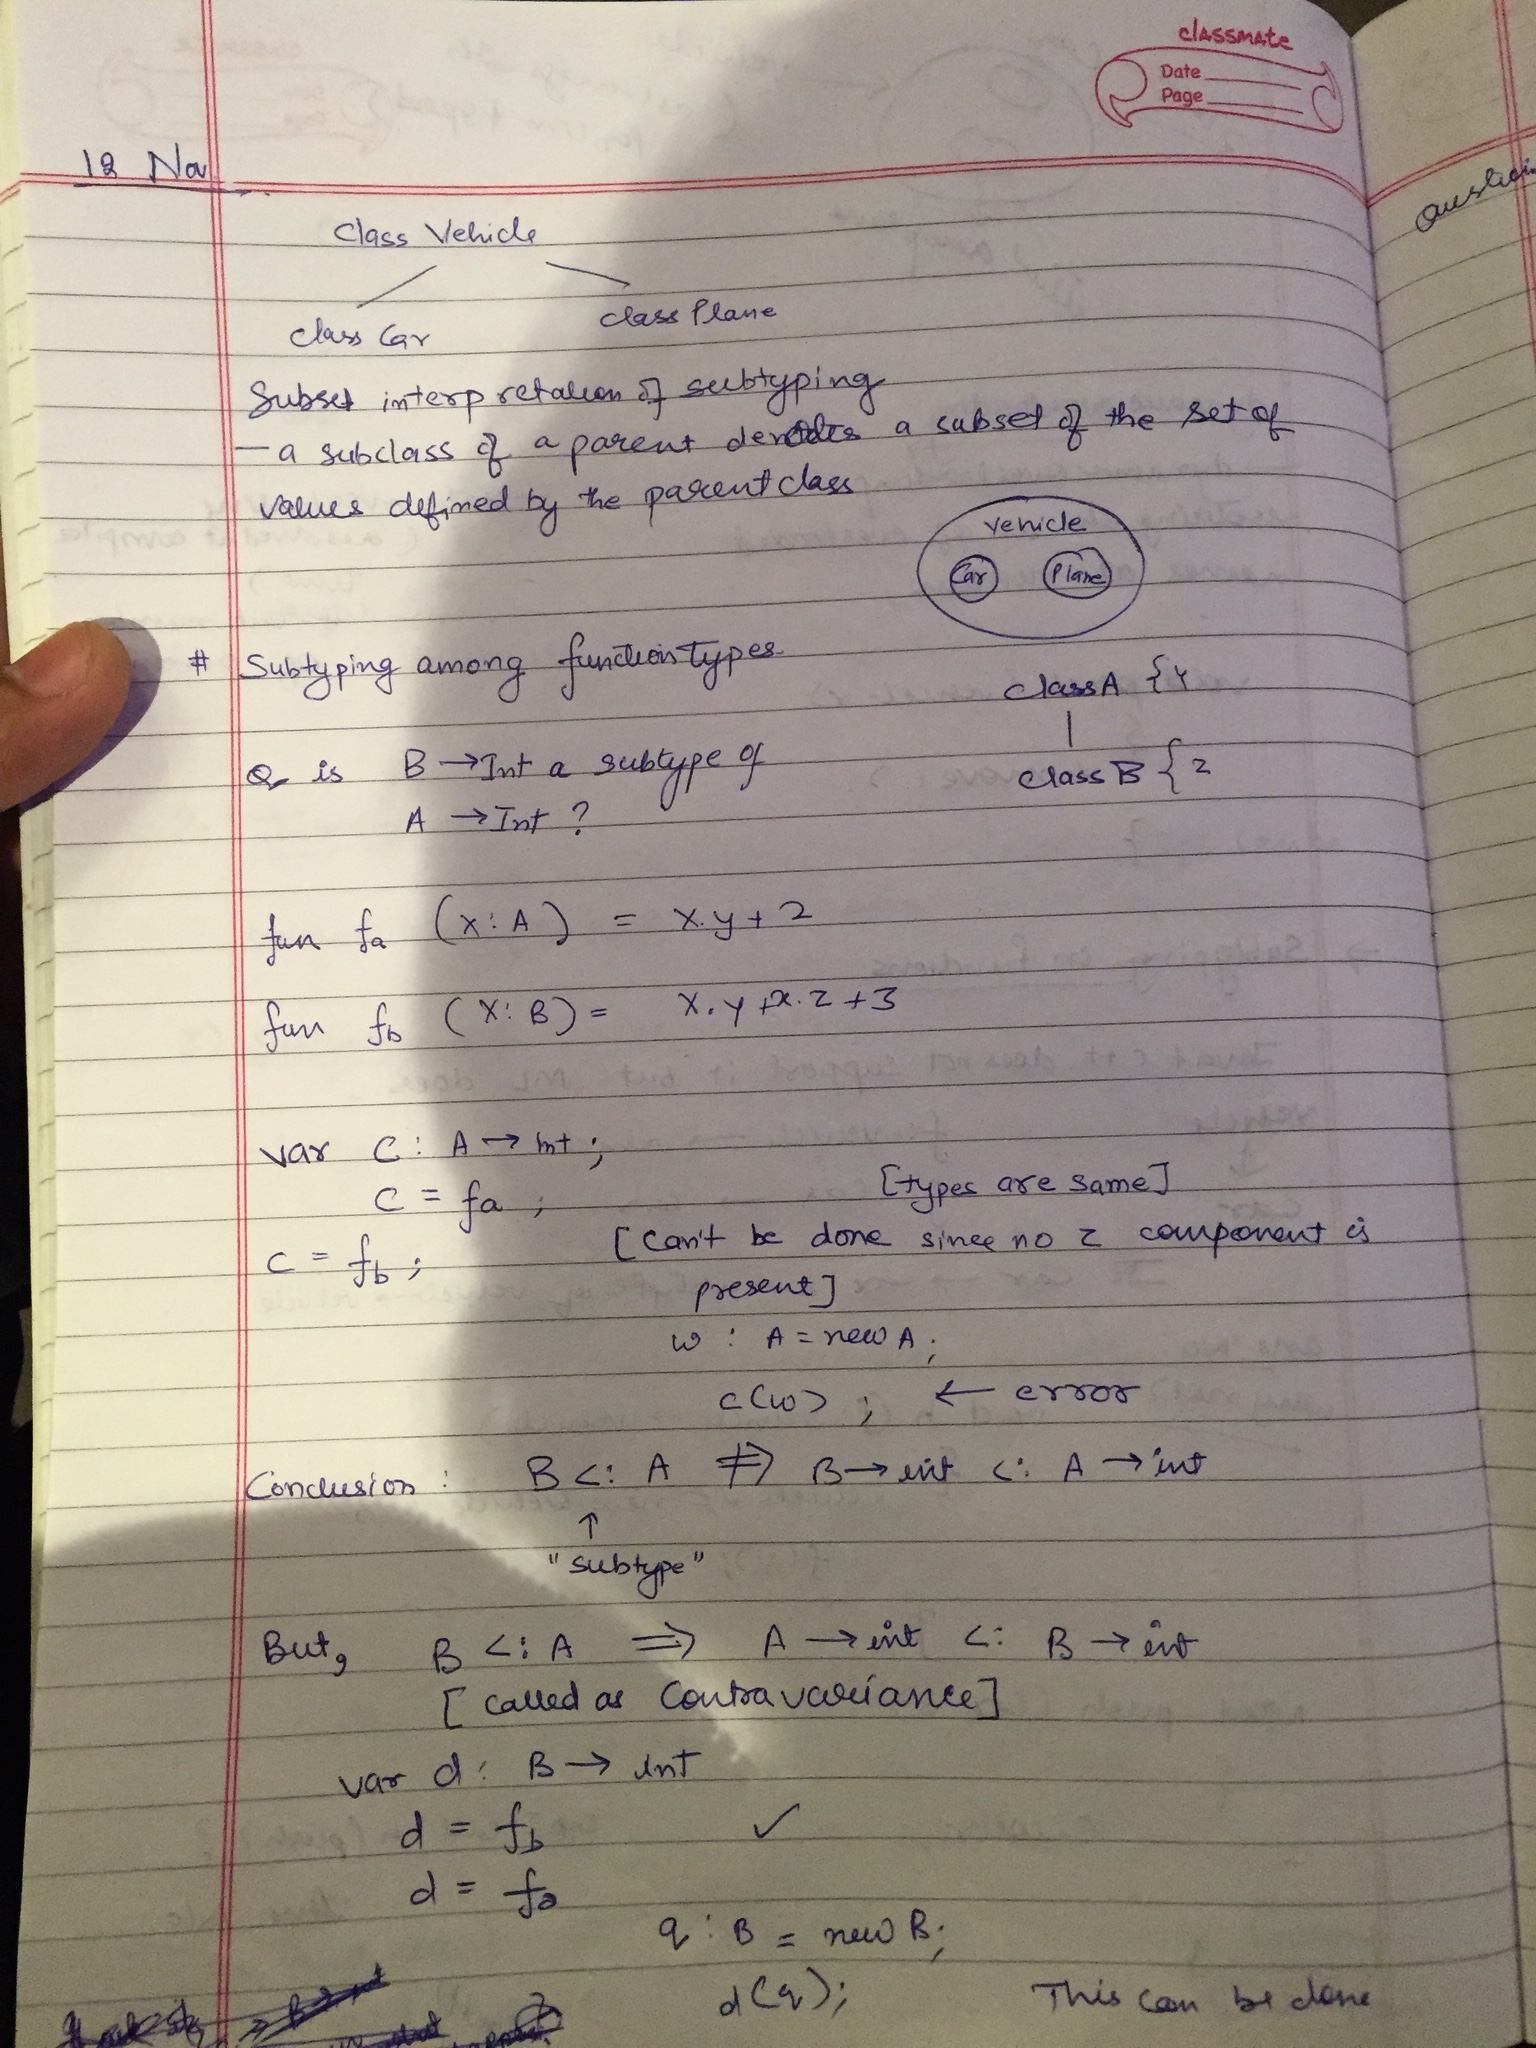 classmate
Date
Page
12 Nov
Class Vehicle
class Car
class Plane
Subset interpretation of subtyping
— a subclass of a parent denotes a subset of the set of
values defined by the parent class
vehicle
Car
Plane
# Subtyping among function types
class A { y
Q is B → Int a subtype of
class B { z
A → Int ?
fun fa (x : A) = x.y + 2
fun fb (x : B) = x.y + x.z + 3
var C : A → Int ;
C = fa ; [types are same]
C = fb ; [Can't be done since no z component is
present]
w : A = new A ;
c(w) ; ← error
Conclusion : B <: A ⇏ B → int <: A → int
↑
"subtype"
But, B <: A ⟹ A → int <: B → int
[called as Contravariance]
var d : B → int
d = fb ✓
d = fa
q : B = new B ;
d(q) ; This can be done
Question